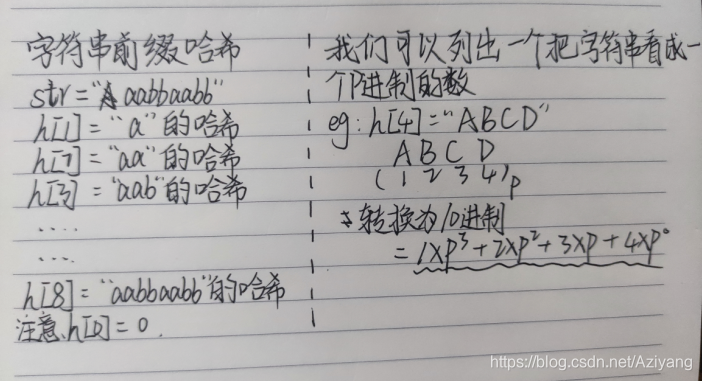 字符串前缀哈希
str="aabbaabb"
h[1]="a"的哈希
h[2]="aa"的哈希
h[3]="aab"的哈希
....
...
h[8]="aabbaabb"的哈希
注意,h[0]=0.
我们可以列出一个把字符串看成一
个P进制的数
eg:h[4]="ABCD"
A B C D
(1 2 3 4)p
转换为10进制
=1xp³+2xp²+3xp+4xp⁰
https://blog.csdn.net/Aziyang